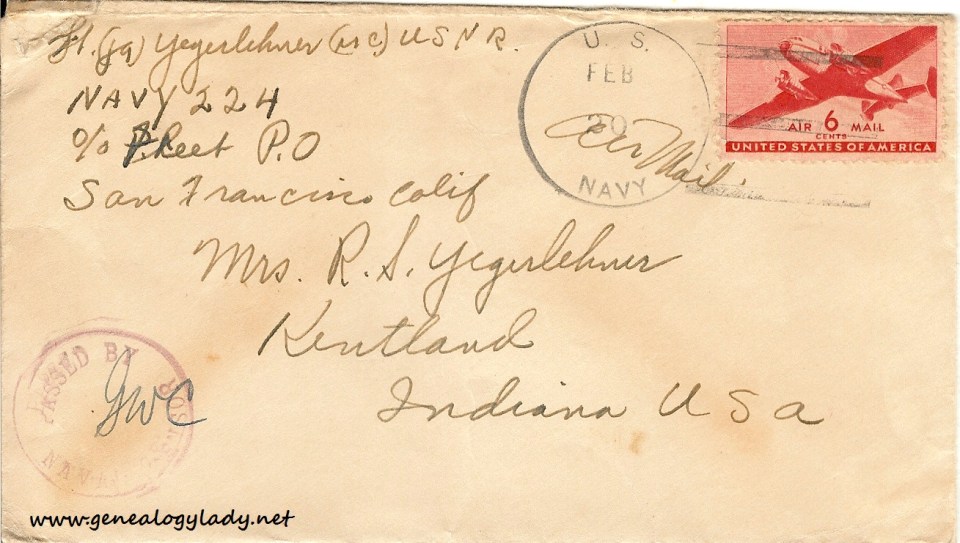 Lt. (jg) Yegerlehner (MC) USNR.
NAVY 224
c/o Fleet P.O
San Francisco Calif
U. S.
FEB
20
NAVY
Air Mail
AIR 6 MAIL
CENTS
UNITED STATES OF AMERICA
Mrs. R. S. Yegerlehner
Kentland
Indiana USA
PASSED BY
NAVAL CENSOR
GWC
www.genealogylady.net